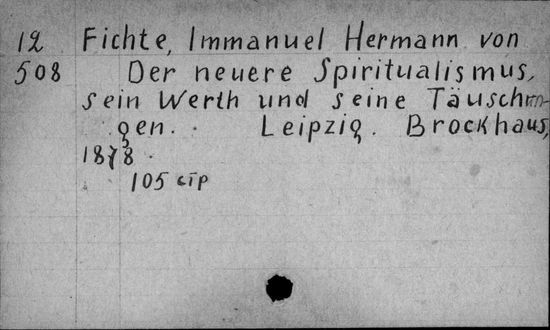 12 Fichte, Immanuel Hermann von
508 Der neuere Spiritualismus,
sein Werth und seine Täuschun-
gen. Leipzig. Brockhaus,
1878.
105 стр